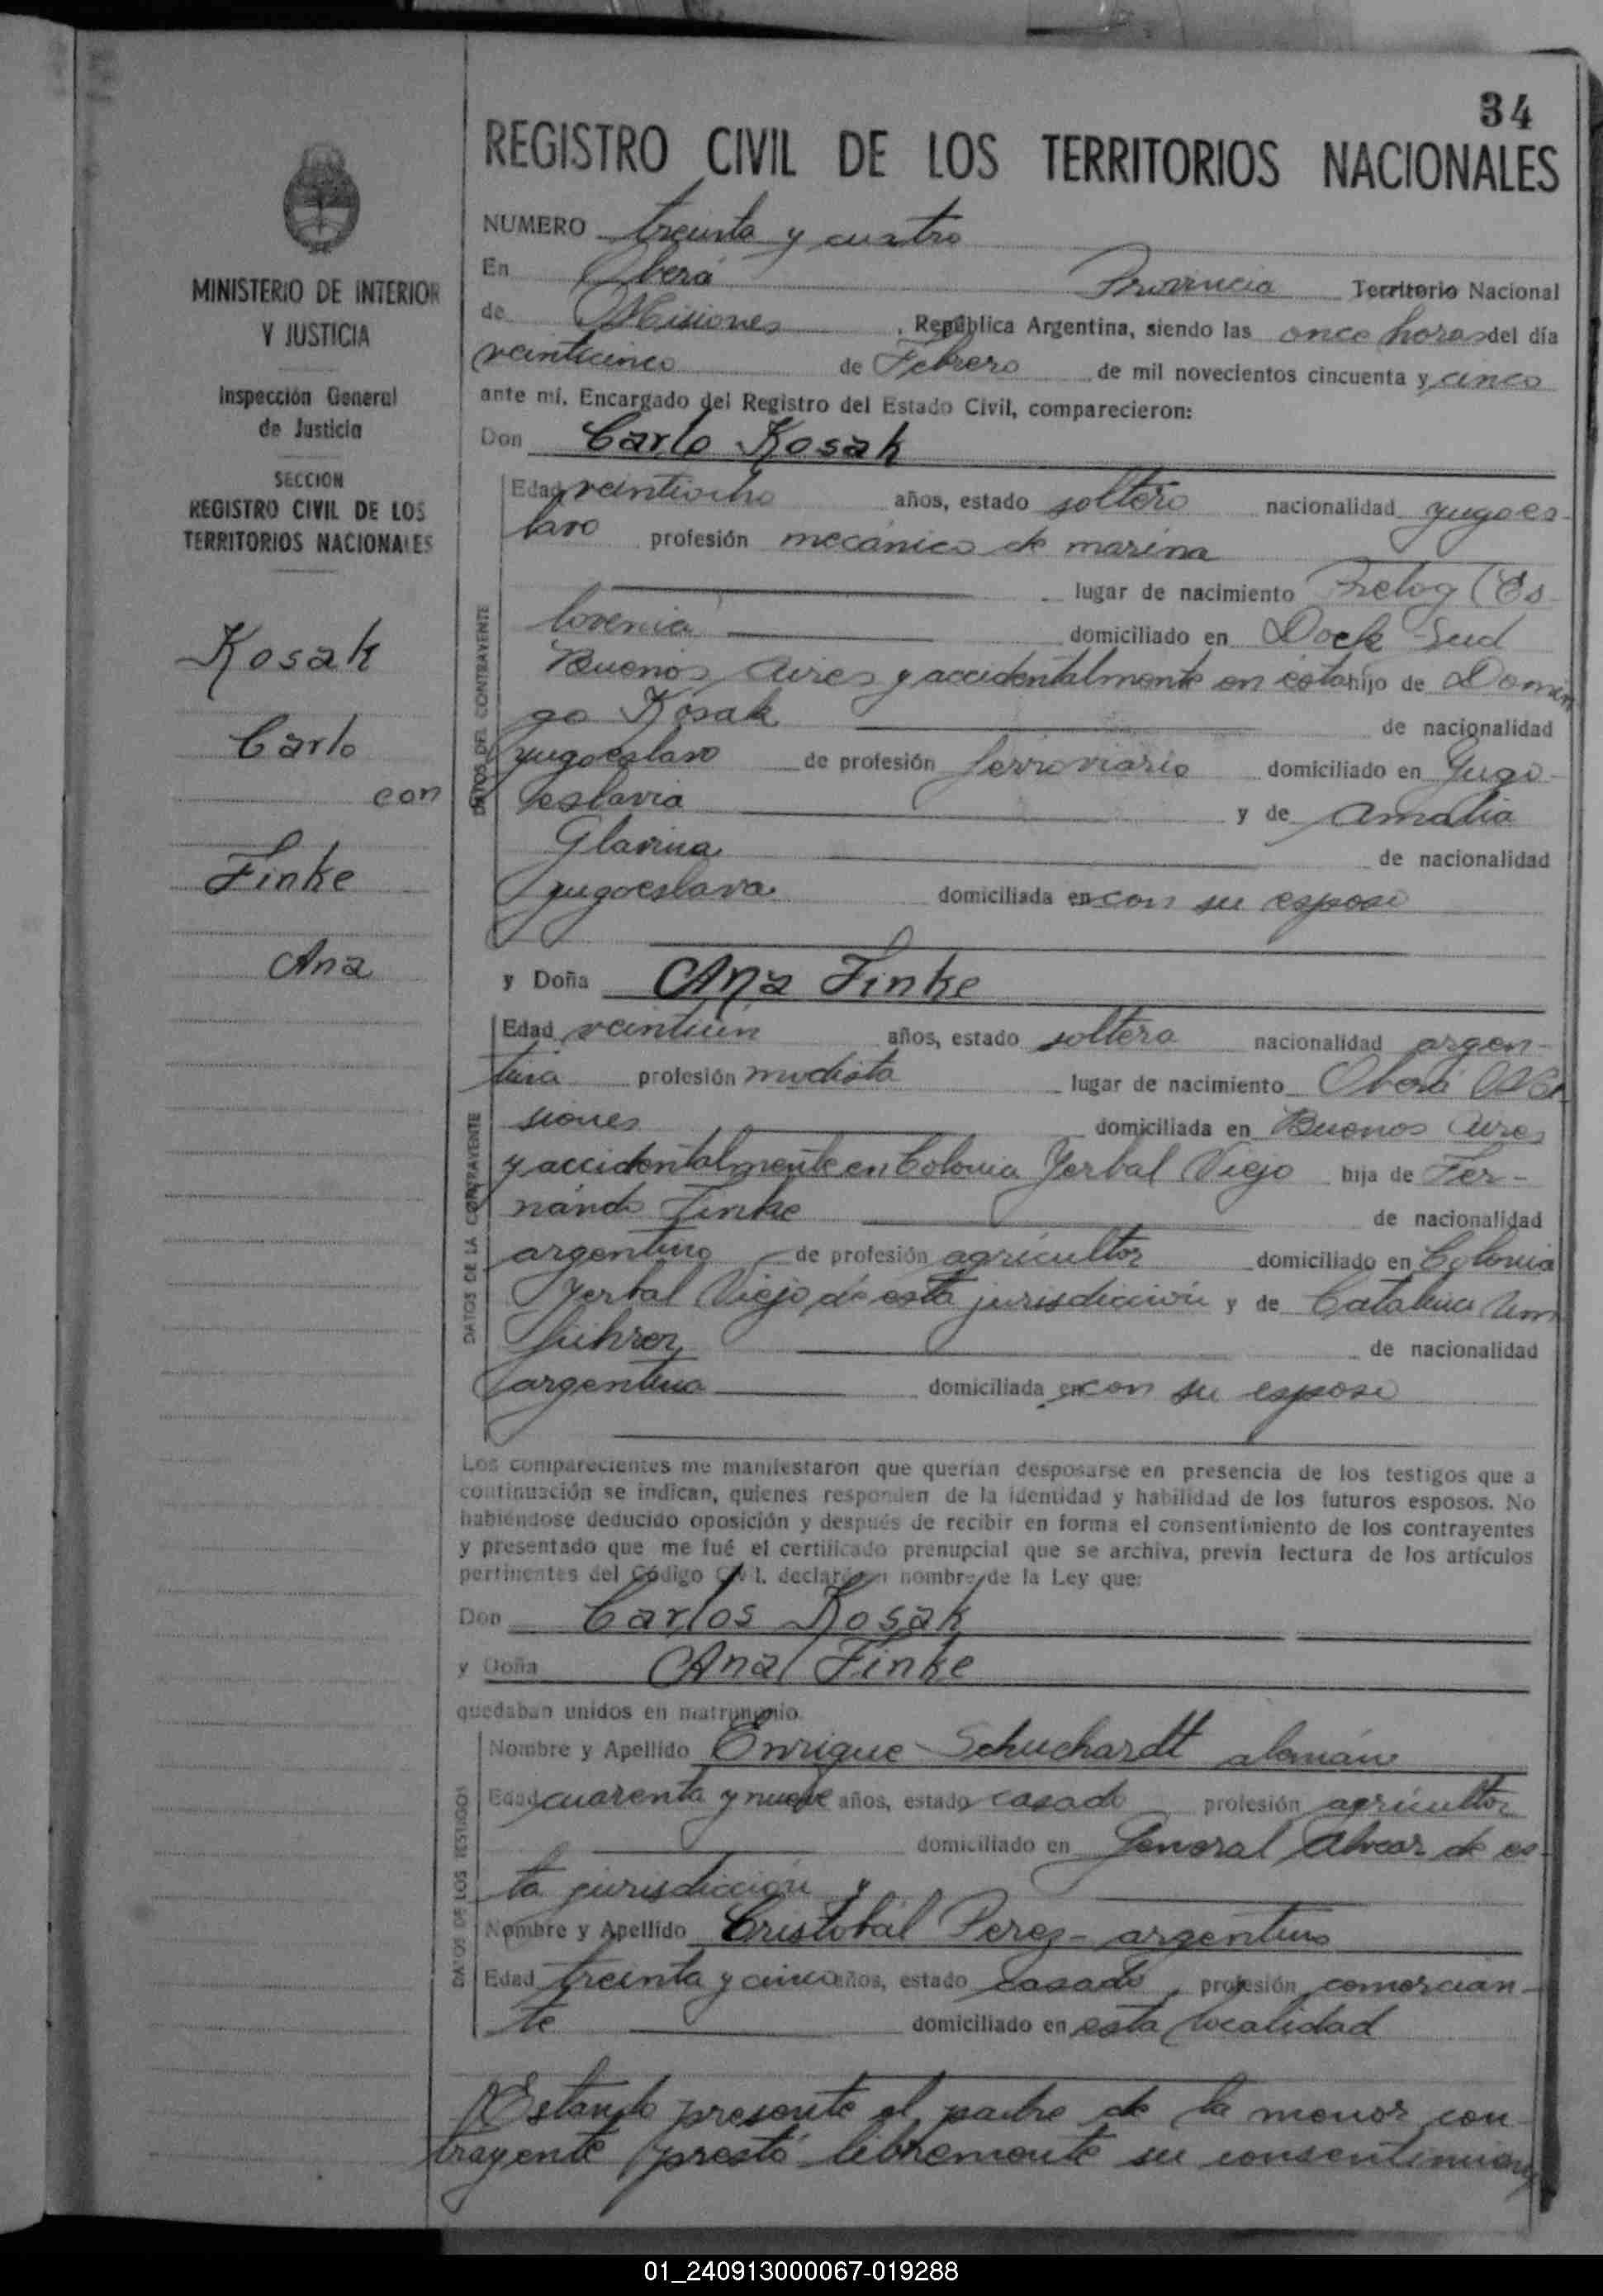 34
REGISTRO CIVIL DE LOS TERRITORIOS NACIONALES
NUMERO treinta y cuatro
En Oberá Provincia Territorio Nacional
de Misiones, República Argentina, siendo las once horas del día
veinticinco de Febrero de mil novecientos cincuenta y cinco
ante mí, Encargado del Registro del Estado Civil, comparecieron:
Don Carlo Kosak
DATOS DEL CONTRAYENTE
Edad veintiocho años, estado soltero nacionalidad yugoes-
lavo profesión mecánico de marina
lugar de nacimiento Prelog (Es-
lovenia domiciliado en Dock Sud
Buenos Aires y accidentalmente en ésta hijo de Domin
go Kosak de nacionalidad
yugoeslavo de profesión ferroviario domiciliado en Yugo-
eslavia y de Amalia
Glavina de nacionalidad
yugoeslava domiciliada en con su esposo
y Doña Ana Finke
DATOS DE LA CONTRAYENTE
Edad veintiún años, estado soltera nacionalidad argen-
tina profesión modista lugar de nacimiento Oberá Mi
siones domiciliada en Buenos Aires
y accidentalmente en Colonia Yerbal Viejo hija de Fer-
nando Finke de nacionalidad
argentino de profesión agricultor domiciliado en Colonia
Yerbal Viejo de esta jurisdicción y de Catalina Um
führer de nacionalidad
argentina domiciliada en con su esposo
Los comparecientes me manifestaron que querían desposarse en presencia de los testigos que a
continuación se indican, quienes responden de la identidad y habilidad de los futuros esposos. No
habiéndose deducido oposición y después de recibir en forma el consentimiento de los contrayentes
y presentado que me fué el certificado prenupcial que se archiva, previa lectura de los artículos
pertinentes del Código Civil, declaré en nombre de la Ley que:
Don Carlos Kosak
y Doña Ana Finke
quedaban unidos en matrimonio.
DATOS DE LOS TESTIGOS
Nombre y Apellido Enrique Schuchardt alemán
Edad cuarenta y nueve años, estado casado profesión agricultor
domiciliado en General Alvear de es-
ta jurisdicción y
Nombre y Apellido Cristobal Perez - argentino
Edad treinta y cinco años, estado casado, profesión comercian-
te domiciliado en esta localidad
Estando presente el padre de la menor con-
trayente prestó libremente su consentimien
MINISTERIO DE INTERIOR
Y JUSTICIA
Inspección General
de Justicia
SECCION
REGISTRO CIVIL DE LOS
TERRITORIOS NACIONALES
Kosak
Carlo
con
Finke
Ana
01_240913000067-019288